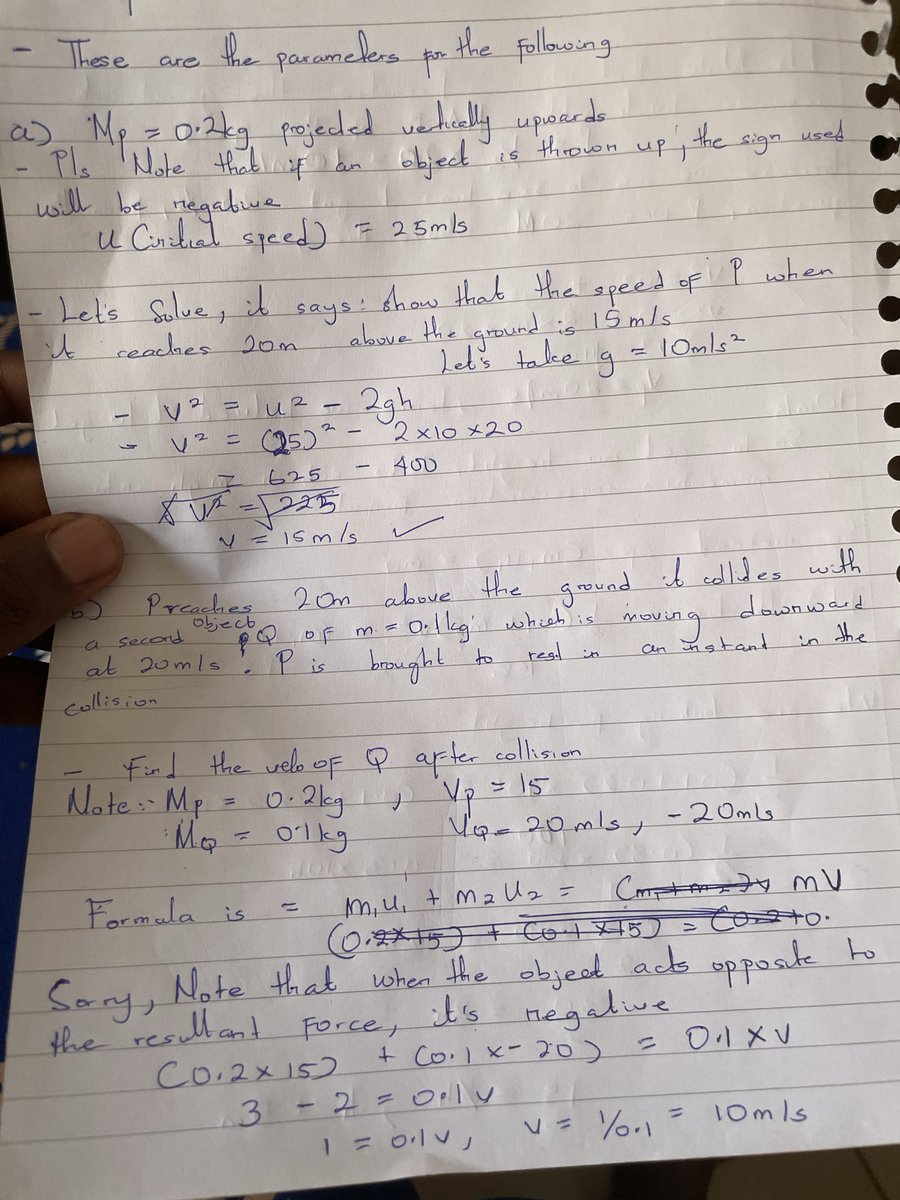 - These are the parameters for the following
a) Mp = 0.2kg projected vertically upwards
- Pls Note that if an object is thrown up, the sign used
will be negative
U (initial speed) = 25m/s
- Let's Solve, it says: show that the speed of P when
it reaches 20m above the ground is 15m/s
Let's take g = 10m/s²
- V² = u² - 2gh
- V² = (25)² - 2×10×20
= 625 - 400
√V² = √225
v = 15m/s ✓
b) P reaches 20m above the ground it collides with
a second object Q of m = 0.1kg which is moving downward
at 20m/s. P is brought to rest in an instant in the
collision
- Find the velo of Q after collision
Note:- Mp = 0.2kg, Vp = 15
MQ = 0.1kg VQ = 20m/s, -20m/s
Formula is = m₁u₁ + m₂u₂ = mV
(0.2×15) + (0.1×15) = (0.2+0.
Sorry, Note that when the object acts opposite to
the resultant Force, it's negative
(0.2×15) + (0.1×-20) = 0.1×v
3 - 2 = 0.1v
1 = 0.1v, v = 1/0.1 = 10m/s